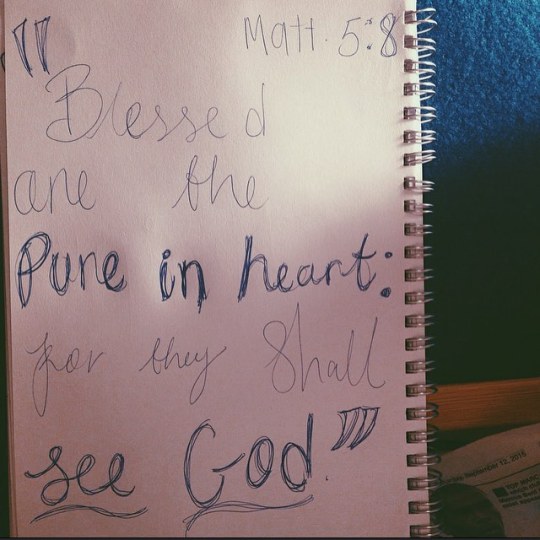 Matt. 5:8
"Blessed
are the
Pure in heart:
for they shall
see God."
September 12, 2015